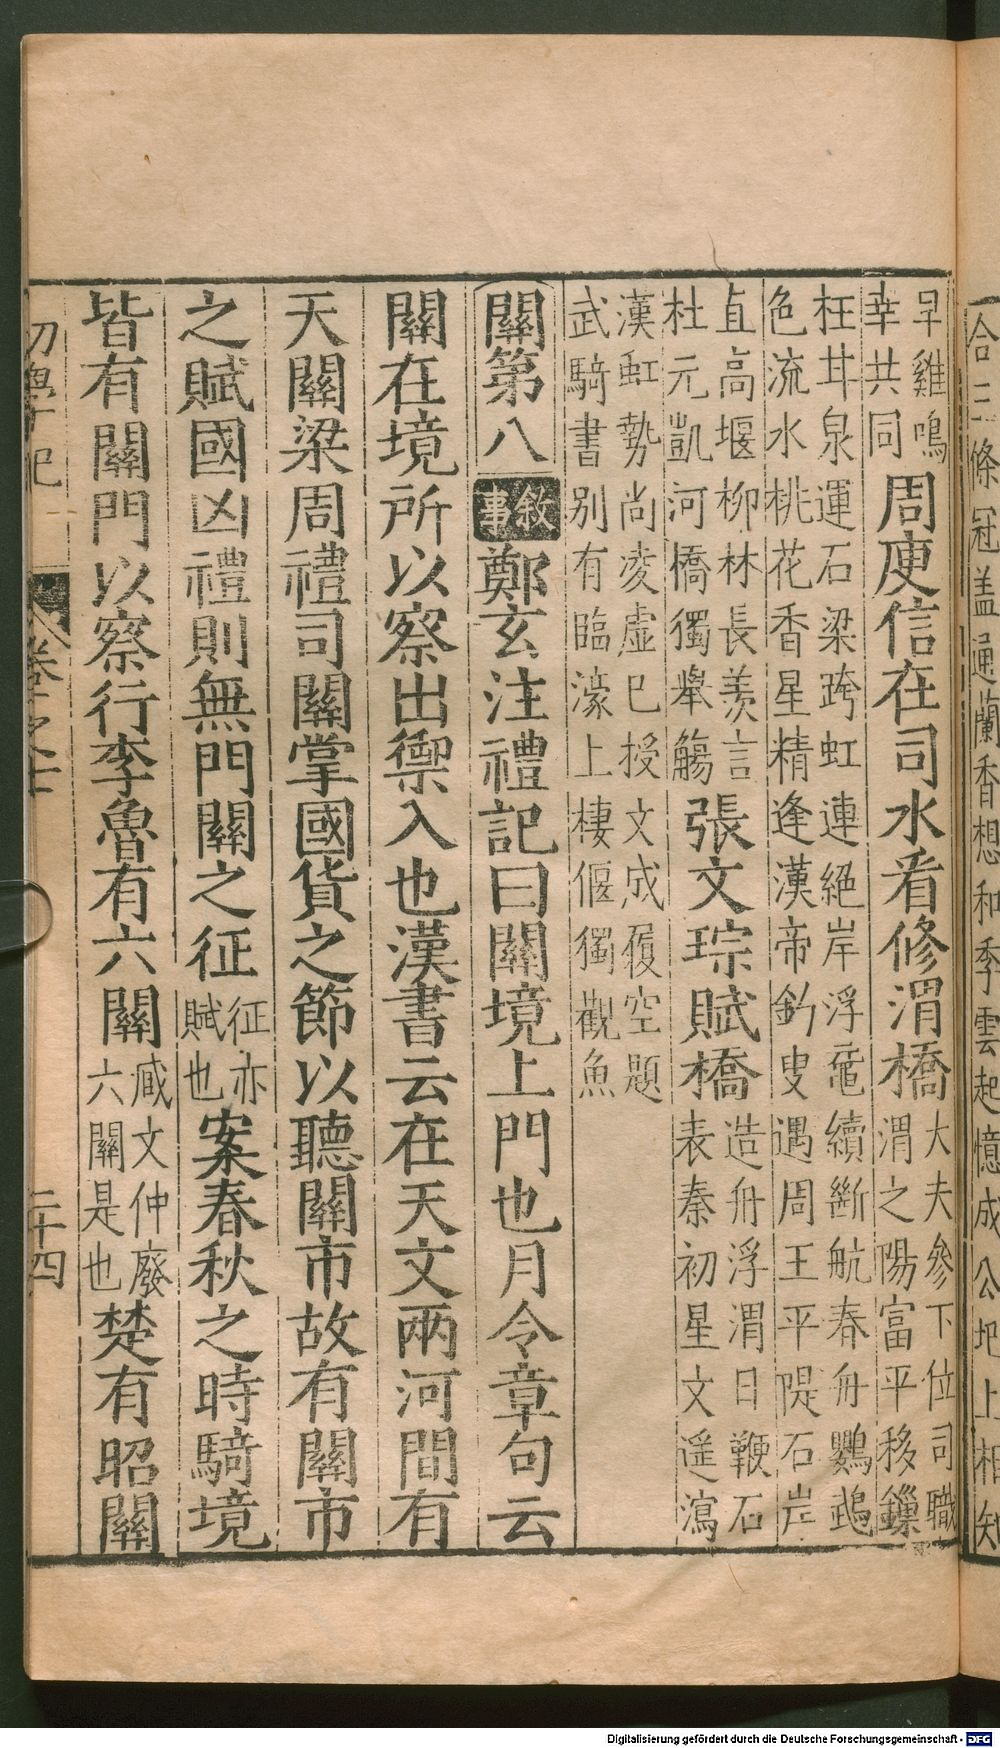 合三條冠盖通蘭香想和季雲起憶成公圯上相知
早雞鳴
幸共同
周庾信在司水看修渭橋
大夫參下位司職
渭之陽富平移鐵
枉甘泉運石梁跨虹連絕岸浮黿續斷航春舟鸚鵡
色流水桃花香星精逢漢帝釣叟遇周王平隄石岸
直高堰柳林長羨言
杜元凱河橋獨舉觴
張文琮賦橋
造舟浮渭日鞭石
表秦初星文遥瀉
漢虹勢尚凌虛已授文成履空題
武騎書别有臨濠上棲偃獨觀魚
關第八
敘事
鄭玄注禮記曰關境上門也月令章句云
關在境所以察出禦入也漢書云在天文兩河間有
天關梁周禮司關掌國貨之節以聽關市故有關市
之賦國凶禮則無門關之征
征亦
賦也
案春秋之時騎境
皆有關門以察行李魯有六關
臧文仲廢
六關是也
楚有昭關
初學記
卷之七
二十四
Digitalisierung gefördert durch die Deutsche Forschungsgemeinschaft - DFG